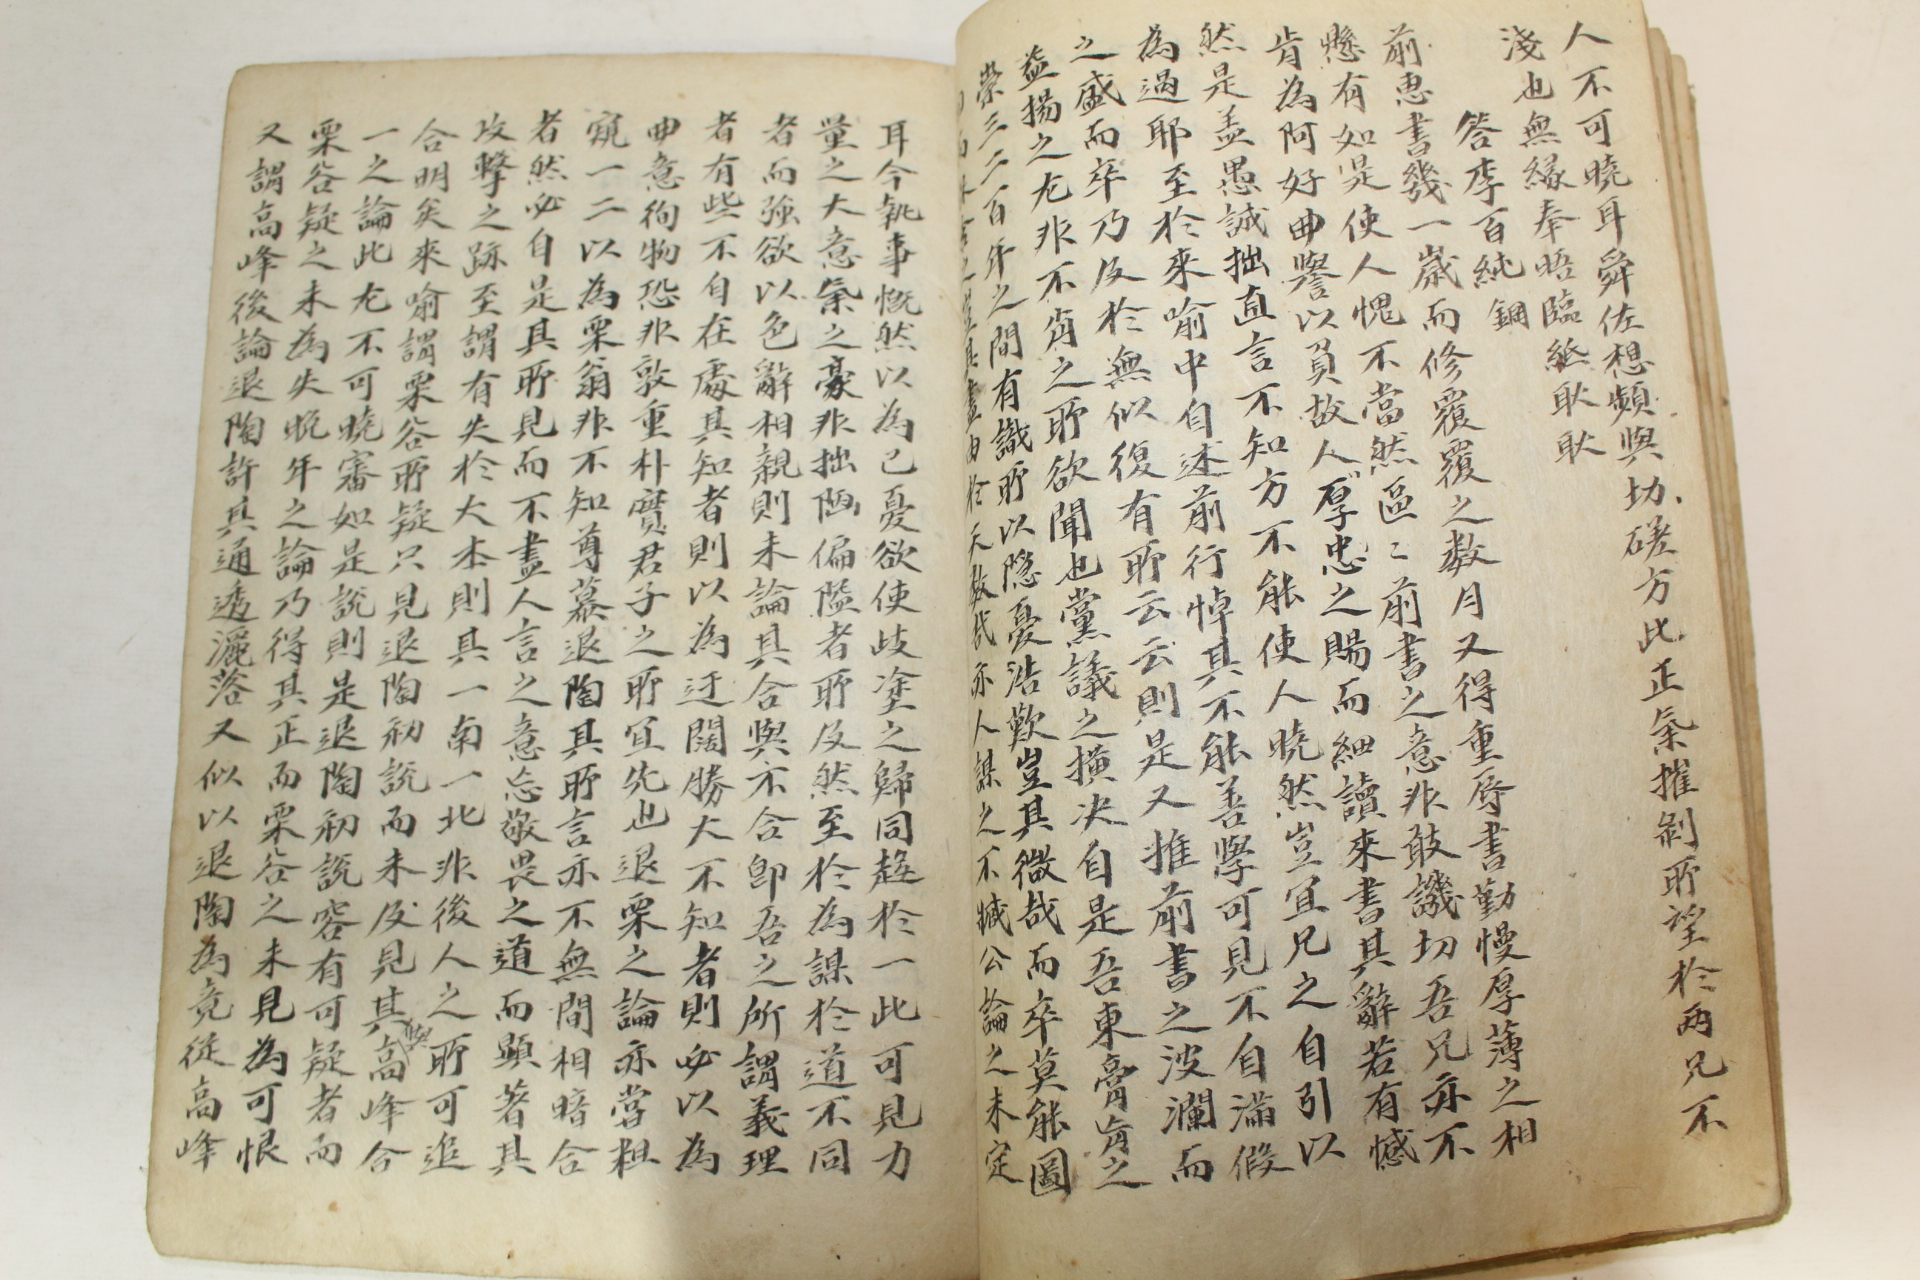 人不可曉耳舜佐想頻與切磋方此正氣摧剝所望於兩兄不
淺也無緣奉晤臨紙耿耿
答李百純 鋼
前惠書幾一歲而修覆覆之数月又得重辱書勤慢厚薄之相
懸有如是使人愧不當然區〻前書之意非敢譏切吾兄亦不
肯為阿好曲譽以負故人厚忠之賜而細讀來書其辭若有憾
然是盖愚誠拙直言不知方不能使人曉然豈宜兄之自引以
為過耶至於來喻中自述前行悼其不能善學可見不自滿假
之盛而卒乃反於無似復有所云云則是又推前書之波瀾而
益揚之尤非不肖之所欲聞也黨議之橫决自是吾東膏肓之
崇三二百年之間有識所以隱憂浩歎豈其微哉而卒莫能圖
由於天数哉亦人謀之不臧公論之未定
耳今執事慨然以為己憂欲使歧塗之歸同趍於一此可見力
量之大意氣之豪非拙陋偏隘者所及然至於為謀於道不同
者而強欲以色辭相親則未論其合與不合卽吾之所謂義理
者有些不自在處其知者則以為迂闊勝大不知者則必以為
曲意徇物恐非敦重朴實君子之所宜先也退栗之論亦嘗粗
窺一二以為栗翁非不知尊慕退陶其所言亦不無間相暗合
者然必自是其所見而不盡人言之意忘敬畏之道而顯著其
攻擊之跡至謂有失於大本則其一南一北非後人之所可追
合明矣來喻謂栗谷所疑只見退陶初說而未及見其與高峰合
一之論此尤不可曉審如是說則是退陶初說容有可疑者而
栗谷疑之未為失晚年之論乃得其正而栗谷之未見為可恨
又謂高峰後論退陶許其通透灑落又似以退陶為竟從高峰